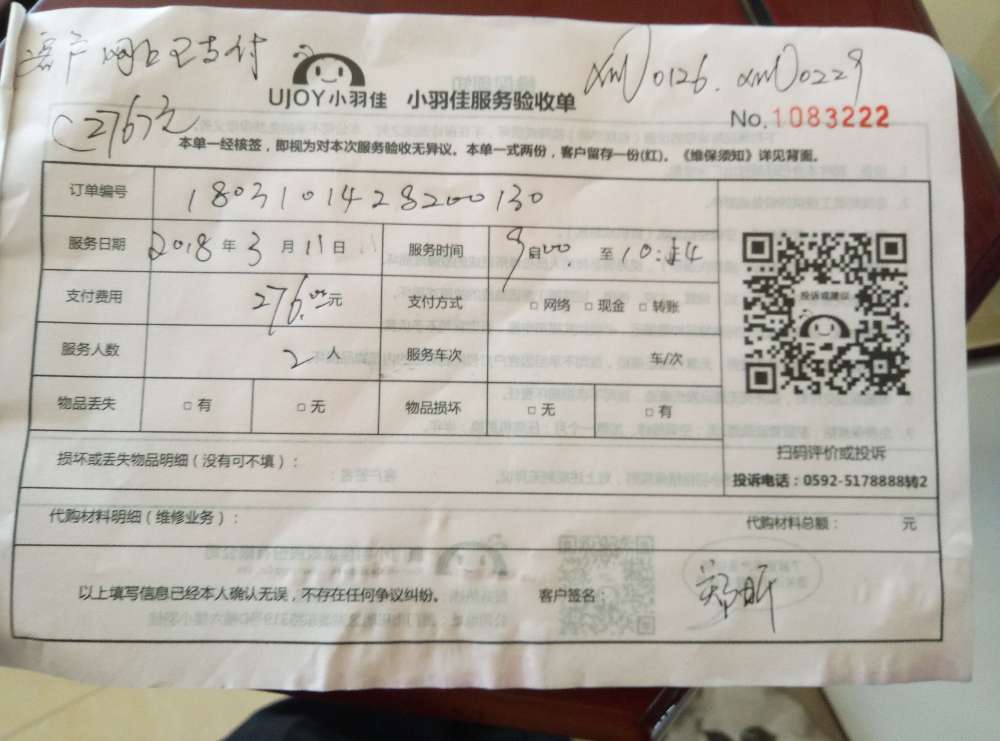 客户网上已支付
xm0126. xm0229
UJOY小羽佳 小羽佳服务验收单
No.1083222
(276元
本单一经核签，即视为对本次服务验收无异议。本单一式两份，客户留存一份(红)。《维保须知》详见背面。
订单编号 1803101428200130
服务日期 2018年3月11日 服务时间 9启00 至10:14
支付费用 276.00元 支付方式 □网络 □现金 □转账
投诉或建议
服务人数 2人 服务车次 车/次
物品丢失 □有 □无 物品损坏 □无 □有
扫码评价或投诉
损坏或丢失物品明细（没有可不填）：
投诉电话：0592-5178888转2
代购材料明细（维修业务）： 代购材料总额： 元
以上填写信息已经本人确认无误，不存在任何争议纠纷。 客户签名： 郑昕